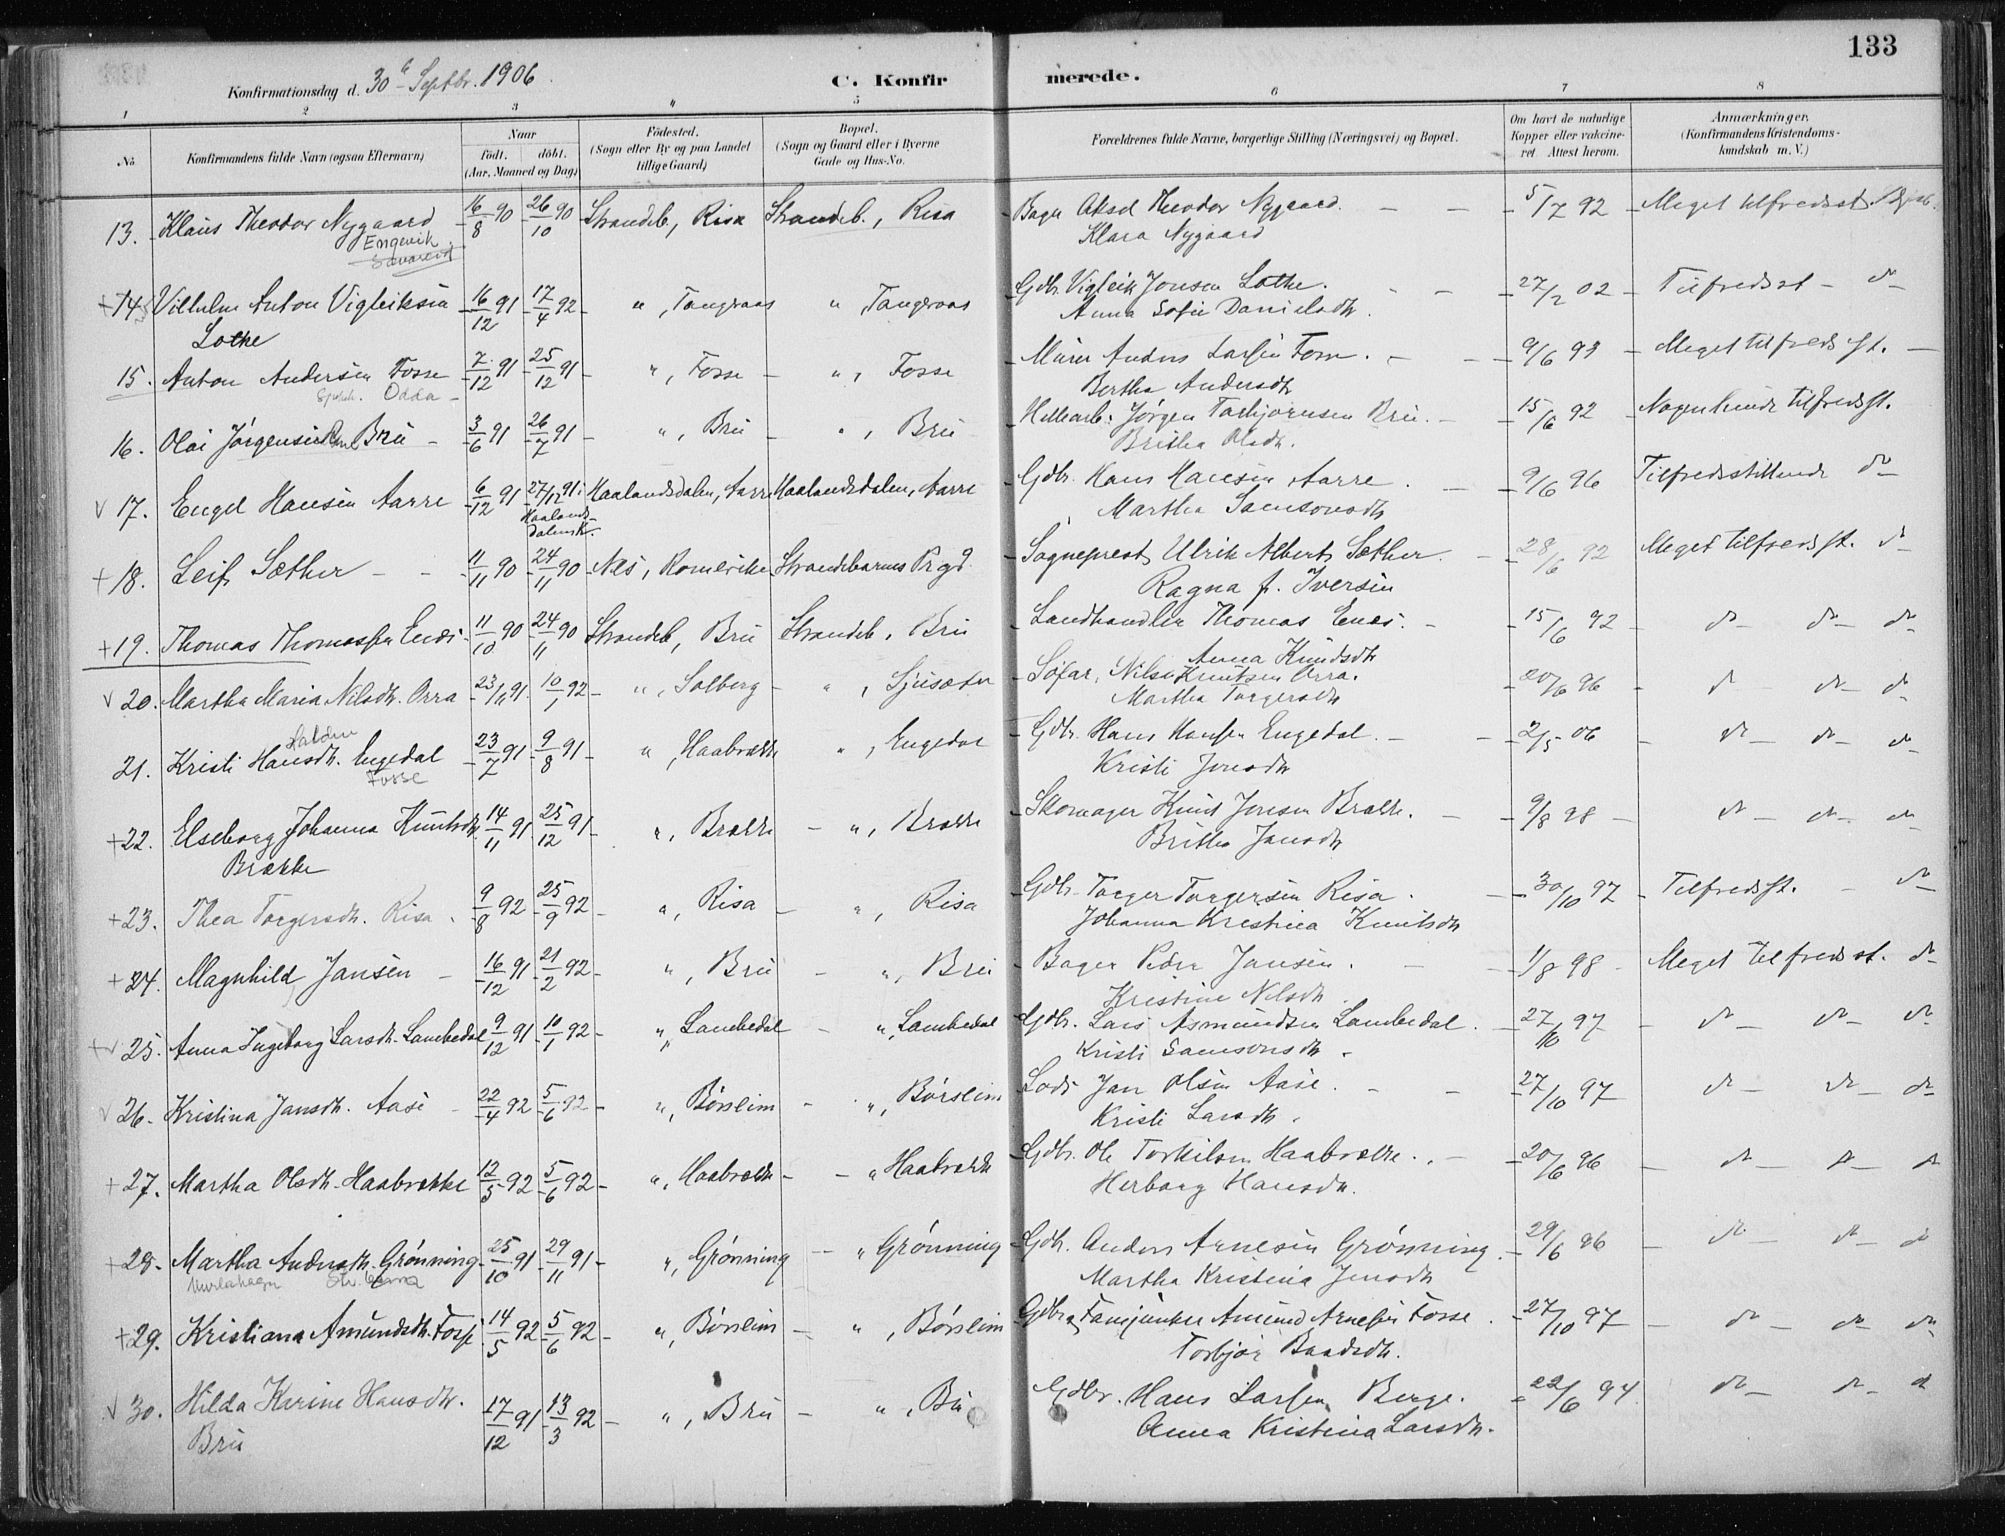 133
Konfirmationsdag d. 30te Septbr. 1906
C. Konfirmerede.
1 2 3 4 5 6 7 8
No
Konfirmandens fulde Navn (ogsaa Efternavn)
Naar
født. døbt.
(Aar, Maaned og Dag)
Fødested.
(Sogn eller By og paa Landet tillige Gaard)
Bopæl.
(Sogn og Gaard eller i Byerne Gade og Hus-No.
Forældrenes fulde Navne, borgerlige Stilling (Næringsvei) og Bopæl.
Om havt de naturlige Kopper eller vaccineret. Attest herom.
Anmærkninger. (Konfirmandens Kristendomskundskab m. V.)
13. Klaus Theodor Nygaard 16/8 90 26/10 90 Strandeb, Risa Strandeb., Risa Bager Aksel Theodor Nygaard. 5/7 92 Meget tilfredsst.
Engevik Klara Nygaard
+14. Vilhelm Anton Vigleiksen 16/12 91 17/4 92 ", Tangeraas " Tangeraas Gdbr. Vigleik Jonsen Lothe. 27/2 02 Tilfredsst - do
Lothe Anna Sofie Danielsdtr.
15. Anton Andersen Fosse 7/12 91 25/12 91 ", Fosse ", Fosse Murer Anders Larsen Fosse. 9/6 93 Meget tilfredsst.
Odda Bertha Andersdtr
16. Olai Jørgensen Bru 3/6 91 26/7 91 ", Bru ", Bru Jørgen Torbjørnsen Bru. 15/6 92 Nogenlunde tilfredsst.
Britha Olsdtr.
v 17. Engel Hansen Aarre 6/12 91 27/12 91 i Haalandsdalen, Aarre Haalandsdalen, Aarre Gdbr. Hans Hansen Aarre. 9/6 96 Tilfredsstillende do
Haalandsdalens K. Martha Samsonsdtr
+18. Leif Sæther 11/11 90 24/11 90 Nes, Romerike Strandebarms Prgd. Sogneprest Ulrik Albert Sæther. 28/6 92 Meget tilfredsst. do
Ragna f. Iversen
+19. Thomas Thomassen Enes 11/10 90 24/11 90 Strandeb, Bru Strandeb., Bru Landhandler Thomas Enes. 15/6 92 do do do
Anna Knudsdtr
v 20. Martha Maria Nilsdtr. Orra 23/11 91 10/1 92 ", Solberg ", Ljusæter Søfar. Nils Knutsen Orra. 20/6 96 do do do
Martha Torgersdtr
21. Kristi Hansdtr. Engedal 23/7 91 9/8 91 ", Haabrekke ", Engedal Gdbr. Hans Hansen Engedal. 2/5 06 do do do
Fosse Kristi Jonsdtr
+22. Elseborg Johanna Knutsdtr. 14/11 91 25/12 91 ", Brække ", Brække Skomager Knut Jonsen Brække. 9/8 98 do do do
Brække Britha Jansdtr
+23. Thea Torgersdtr. Risa 9/8 92 25/9 92 ", Risa ", Risa Gdbr. Torger Torgersen Risa. 30/10 97 Tilfredsst. do
Johanna Kristina Knutsdtr
+24. Magnhild Jansen 16/12 91 21/2 92 ", Bru ", Bru Bager Peder Jansen. 1/8 98 Meget tilfredsst. do
Kristine Nilsdtr
+v 25. Anna Ingeborg Larsdtr. Lambedal 9/12 91 10/1 92 ", Lambedal ", Lambedal Gdbr. Lars Asmundsen Lambedal. 27/10 97 do do do
Kristi Samsonsdtr.
v 26. Kristina Jansdtr. Aase 22/4 92 5/6 92 ", Børsheim ", Børsheim Lods Jan Olsen Aase. 27/10 97 do do do
Kristi Larsdtr.
+27. Martha Olsdtr. Haabrekke 12/5 92 5/6 92 ", Haabrekke " Haabrekke Gdbr. Ole Torkilsen Haabrekke. 20/6 96 do do do
Herborg Hansdtr.
+28. Martha Andersdtr. Grønning 25/10 91 29/11 91 ", Grønning " Grønning Gdbr. Anders Arnesen Grønning. 29/6 96 do do do
Martha Kristina Jensdtr
+29. Kristiana Amundsdtr. Fosse 14/5 92 5/6 92 ", Børsheim ", Børsheim Gdbr. Amund Arnesen Fosse. 27/10 97 do do do
Torbjør Baadsdtr.
v 30. Hilda Karine Hansdtr. 17/12 91 13/3 92 ", Bru ", Bru Gdbr. Hans Larsen Berge. 22/6 94 do do do
Bru Anna Kristina Larsdtr.